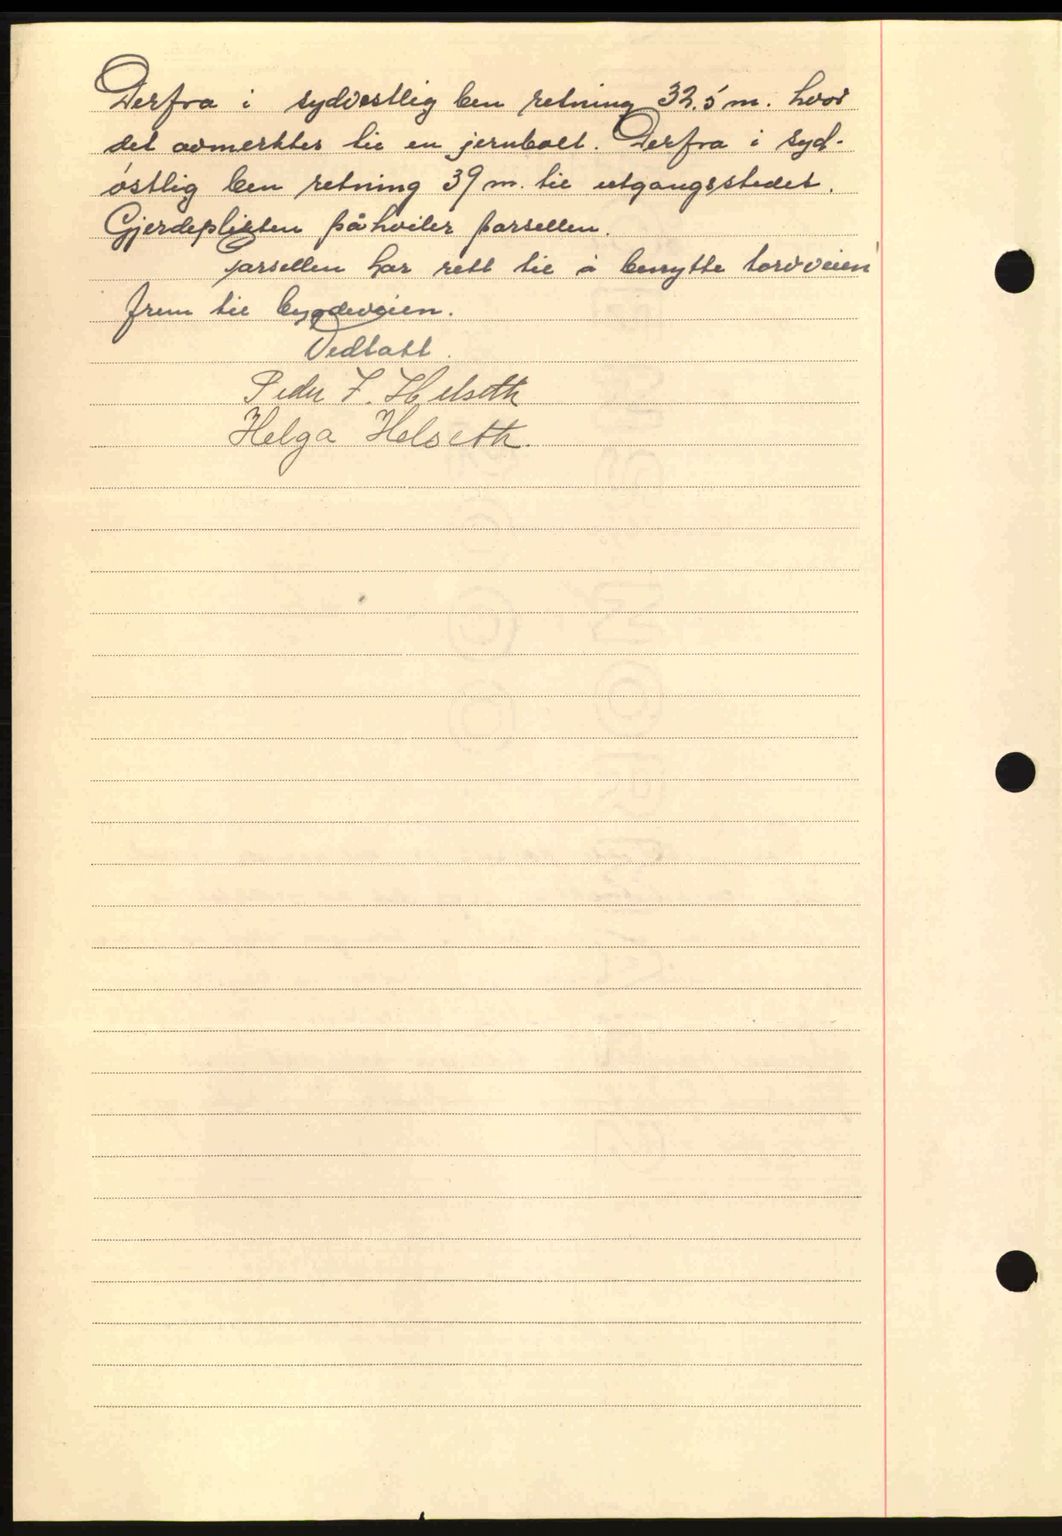 Derfra i sydvestlig ben retning 32,5 m. hvor
det avmerktes til en jernbolt. Derfra i syd-
østlig ben retning 39 m. til utgangsstedet.
Gjerdeplikten påhviler parsellen.
Parsellen har rett til å benytte torvveien
frem til bygdeveien.
Vedtatt.
Peder J. Helseth
Helga Helseth.